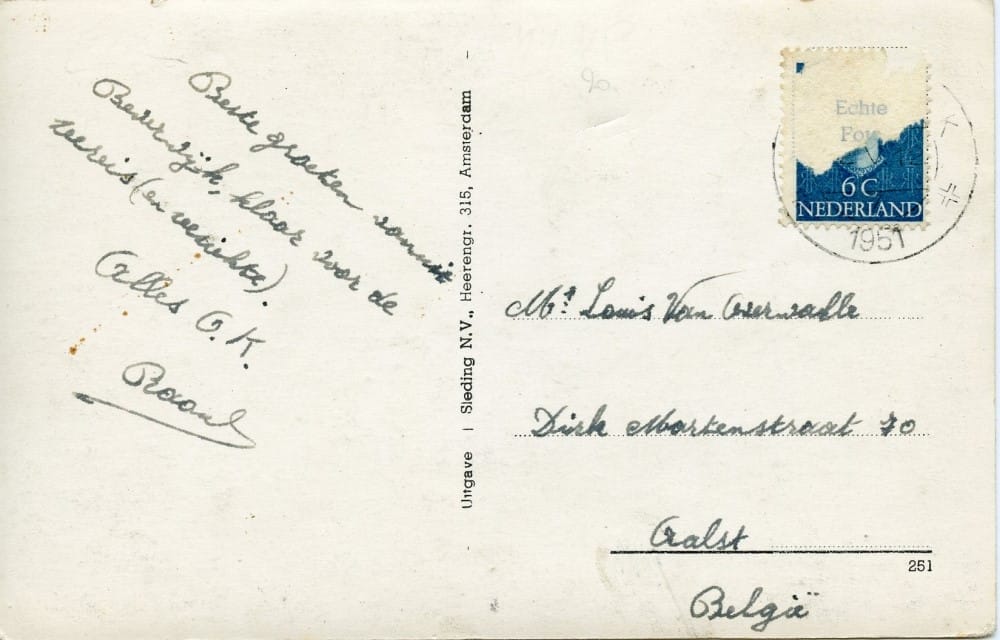 Beste groeten vanuit
Beverwijk, klaar voor de
zeereis (en zeeziekte).
Alles O.K.
Raoul
Uitgave | Sleding N.V., Heerengr. 315, Amsterdam
90
Echte
Foto
6 C
NEDERLAND
K
1951
Mr Louis Van Overwalle
Dirk Martenstraat 70
Aalst
251
België